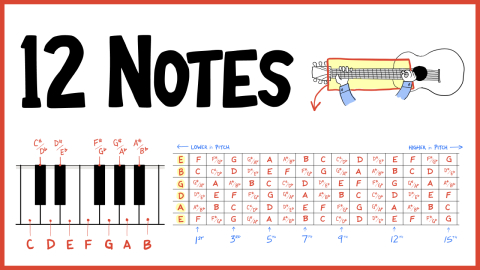 12 NOTES
C# D# F# G# A#
Db Eb Gb Ab Bb
C D E F G A B
LOWER in PITCH HIGHER in PITCH
E F F#/Gb G G#/Ab A A#/Bb B C C#/Db D D#/Eb E F F#/Gb G
B C C#/Db D D#/Eb E F F#/Gb G G#/Ab A A#/Bb B C C#/Db D
G G#/Ab A A#/Bb B C C#/Db D D#/Eb E F F#/Gb G G#/Ab A A#/Bb
D D#/Eb E F F#/Gb G G#/Ab A A#/Bb B C C#/Db D D#/Eb E F
A A#/Bb B C C#/Db D D#/Eb E F F#/Gb G G#/Ab A A#/Bb B C
E F F#/Gb G G#/Ab A A#/Bb B C C#/Db D D#/Eb E F F#/Gb G
1st 3rd 5th 7th 9th 12th 15th